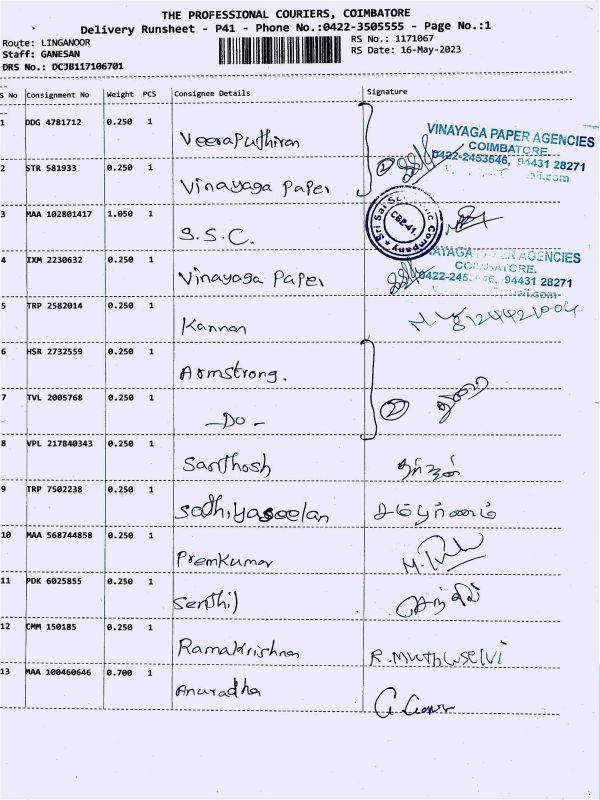 THE PROFESSIONAL COURIERS, COIMBATORE
Delivery Runsheet - P41 - Phone No.:0422-3505555 - Page No.:1
Route: LINGANOOR
Staff: GANESAN
DRS No.: DCJB117106701
RS No.: 1171067
RS Date: 16-May-2023
S No Consignment No Weight PCS Consignee Details Signature
1 DDG 4781712 0.250 1 Veeraputhiran
VINAYAGA PAPER AGENCIES
COIMBATORE.
0422-2453646, 94431 28271
2 STR 581933 0.250 1 Vinayaga Paper
2
3 MAA 102801417 1.050 1 S.S.C.
Sri Sai Company
CBE-41
4 IXM 2230632 0.250 1 Vinayaga Paper
AGENCIES
COIMBATORE.
94431 28271
5 TRP 2582014 0.250 1 Kannan
6 HSR 2732559 0.250 1 Armstrong.
7 TVL 2005768 0.250 1 -Do-
2
8 VPL 217840343 0.250 1 Santhosh
9 TRP 7502238 0.250 1 Sathiyaseelan
10 MAA 568744858 0.250 1 Premkumar
11 PDK 6025855 0.250 1 Senthil
12 CMM 150185 0.250 1 Ramakrishna R. Muthuselvi
13 MAA 100460646 0.700 1 Anuradha